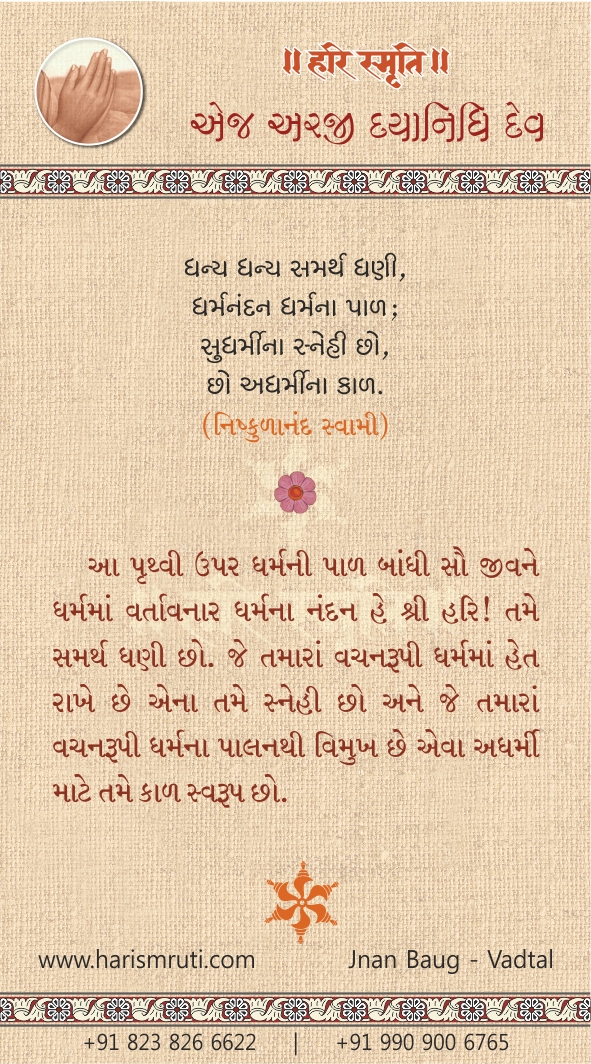 ॥ हरि स्मृति ॥
એજ અરજી દયાનિધિ દેવ
ધન્ય ધન્ય સમર્થ ધણી,
ધર્મનંદન ધર્મના પાળ;
સુધર્મીના સ્નેહી છો,
છો અધર્મીના કાળ.
(નિષ્કુળાનંદ સ્વામી)
આ પૃથ્વી ઉપર ધર્મની પાળ બાંધી સૌ જીવને
ધર્મમાં વર્તાવનાર ધર્મના નંદન હે શ્રી હરિ! તમે
સમર્થ ધણી છો. જે તમારાં વચનરૂપી ધર્મમાં હેત
રાખે છે એના તમે સ્નેહી છો અને જે તમારાં
વચનરૂપી ધર્મના પાલનથી વિમુખ છે એવા અધર્મી
માટે તમે કાળ સ્વરૂપ છો.
www.harismruti.com Jnan Baug - Vadtal
+91 823 826 6622 | +91 990 900 6765